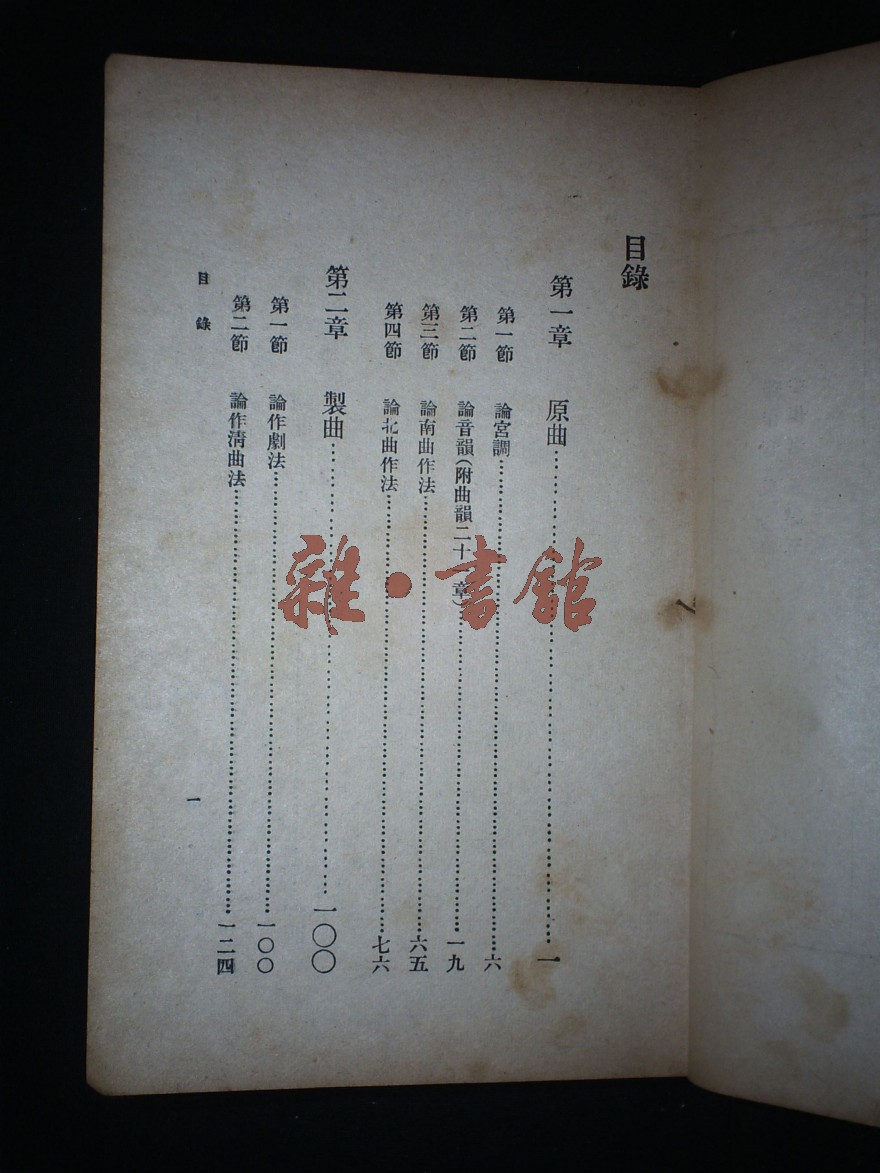 目錄
第一章 原曲……一
第一節 論宮調……六
第二節 論音韻(附曲韻二十一章)……一九
第三節 論南曲作法……六五
第四節 論北曲作法……七六
第二章 製曲……一〇〇
第一節 論作劇法……一〇〇
第二節 論作淸曲法……一二四
目錄
一
雜·書館